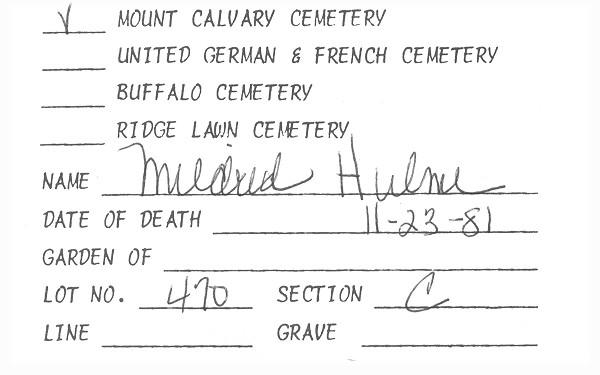 ✓ MOUNT CALVARY CEMETERY
UNITED GERMAN & FRENCH CEMETERY
BUFFALO CEMETERY
RIDGE LAWN CEMETERY
NAME Mildred Hulme
DATE OF DEATH 11-23-81
GARDEN OF
LOT NO. 470 SECTION C
LINE GRAVE